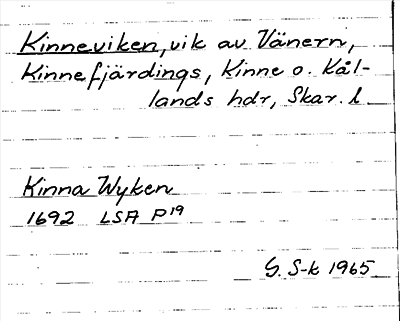 Kinneviken, vik av Vänern,
Kinnefjärdings, Kinne o. Kål-
lands hdr, Skar. l
Kinna Wyken
1692 LSA P19
G. S-k 1965